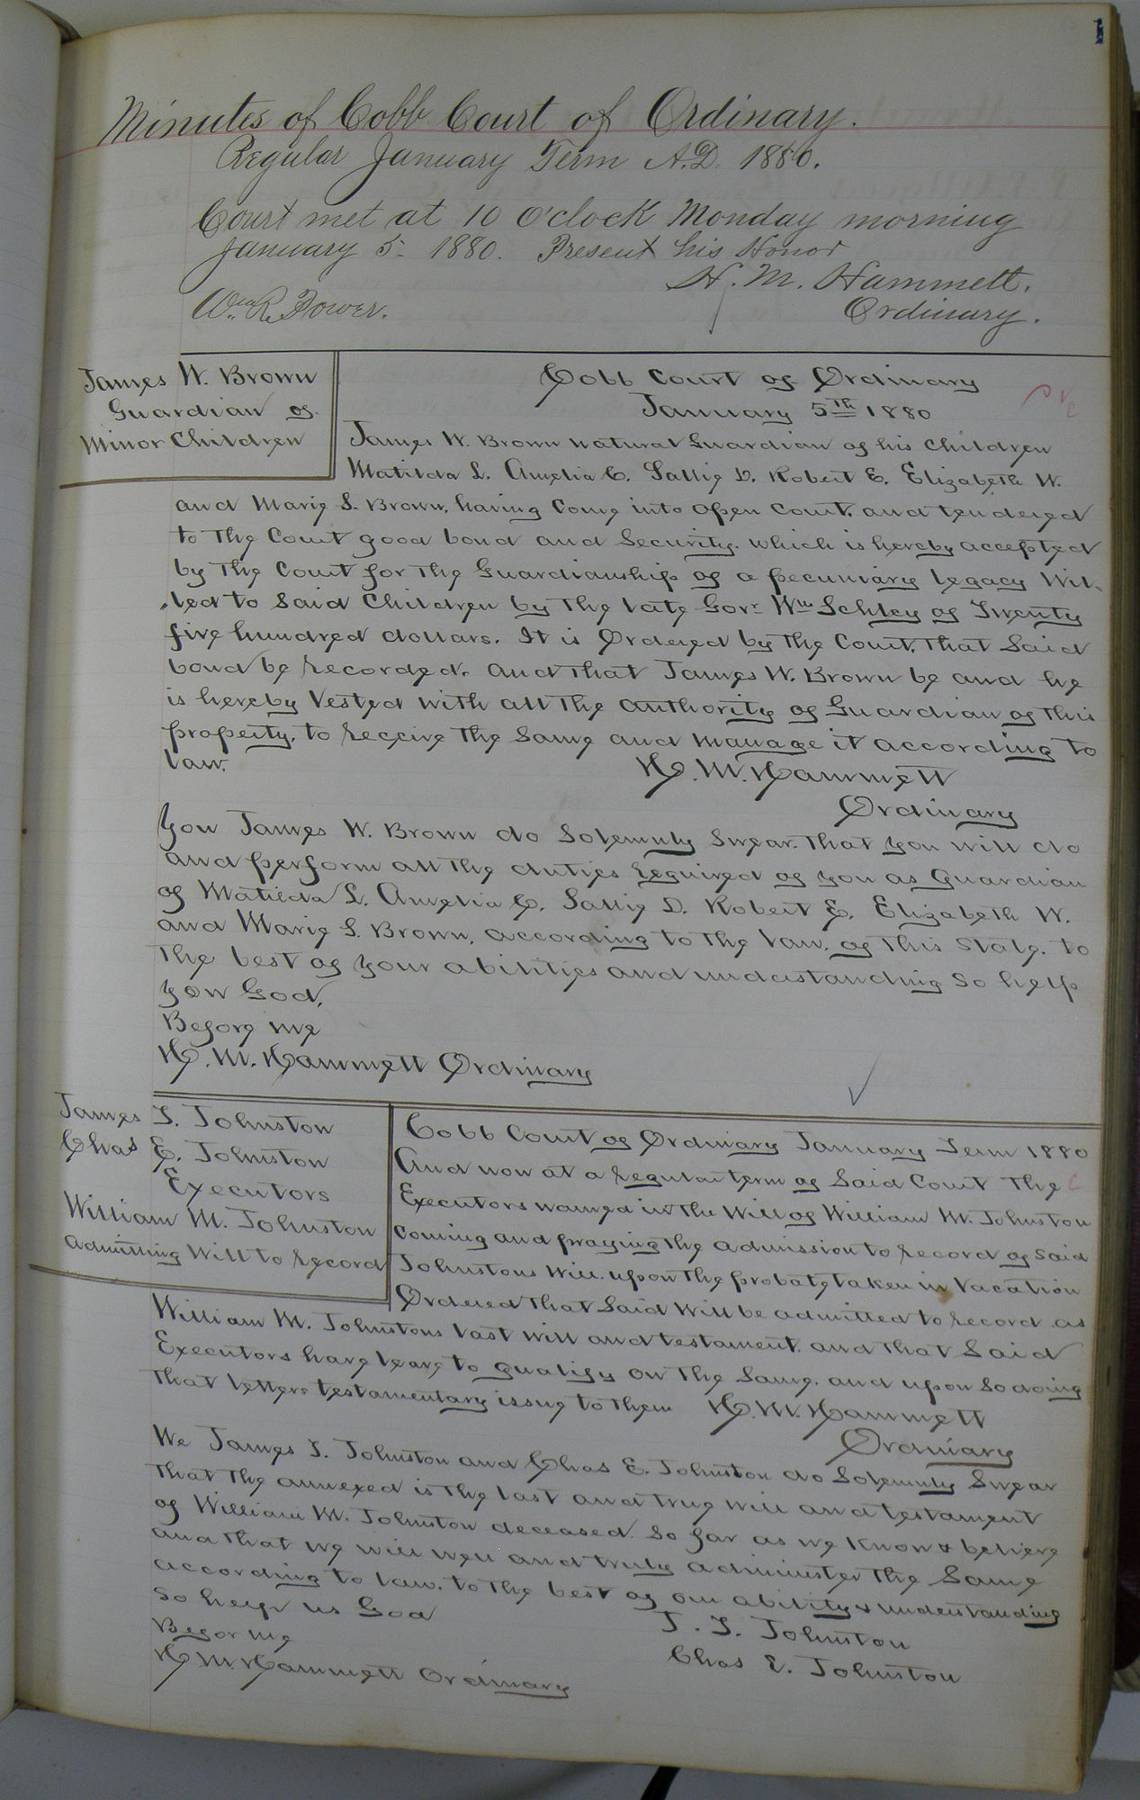 1
Minutes of Cobb Court of Ordinary.
Regular January Term A.D. 1880.
Court met at 10 O'clock Monday morning
January 5- 1880. Present his Honor
H. M. Hammett.
Wm. R. Power. Ordinary.
James W. Brown
Guardian of
Minor Children
Cobb Court of Ordinary
January 5th 1880
James W. Brown natural Guardian of his Children
Matilda L. Amelia C. Sallie D. Robert E. Elizabeth W.
and Marie S. Brown, having Come into open Court, and tendered
to The Court good bond and Security. which is hereby accepted
by The Court for The Guardianship of a pecuniary legacy Wil-
led to Said Children by The late Govr Wm Schley of Twenty
five hundred dollars. It is Ordered by The Court, That Said
bond be recorded. And That James W. Brown be and he
is hereby Vested with all The authority of Guardian of This
property, to receive The Same and manage it according to
law. H. M. Hammett
Ordinary
You James W. Brown do Solemnly Swear, That you will do
and perform all The duties required of you as Guardian
of Matilda L. Amelia C. Sallie D. Robert E. Elizabeth W.
and Marie S. Brown, according to The law, of This State, to
The best of your abilities and understanding So help
you God.
Before me
H. M. Hammett Ordinary
James T. Johnston
Chas E. Johnston
Executors
William M. Johnston
Admitting Will to record
Cobb Court of Ordinary January Term 1880
And now at a regular term of Said Court The
Executors named in the Will of William M. Johnston
Coming and praying The admission to record of Said
Johnstons Will. upon The probate taken in Vacation
Ordered That Said Will be admitted to record as
William M. Johnstons last will and testament, and That Said
Executors have leave to qualify on The Same, and upon So doing
That letters testamentary issue to Them H. M. Hammett
Ordinary
We James T. Johnston and Chas E. Johnston do Solemnly Swear
That The annexed is The last and true will and testament
of William M. Johnston deceased So far as we Know & believe
and That we will well and truly administer The Same
according to law. to The best of our ability & understanding
So help us God J. T. Johnston
Befor me Chas E. Johnston
H. M. Hammett Ordinary